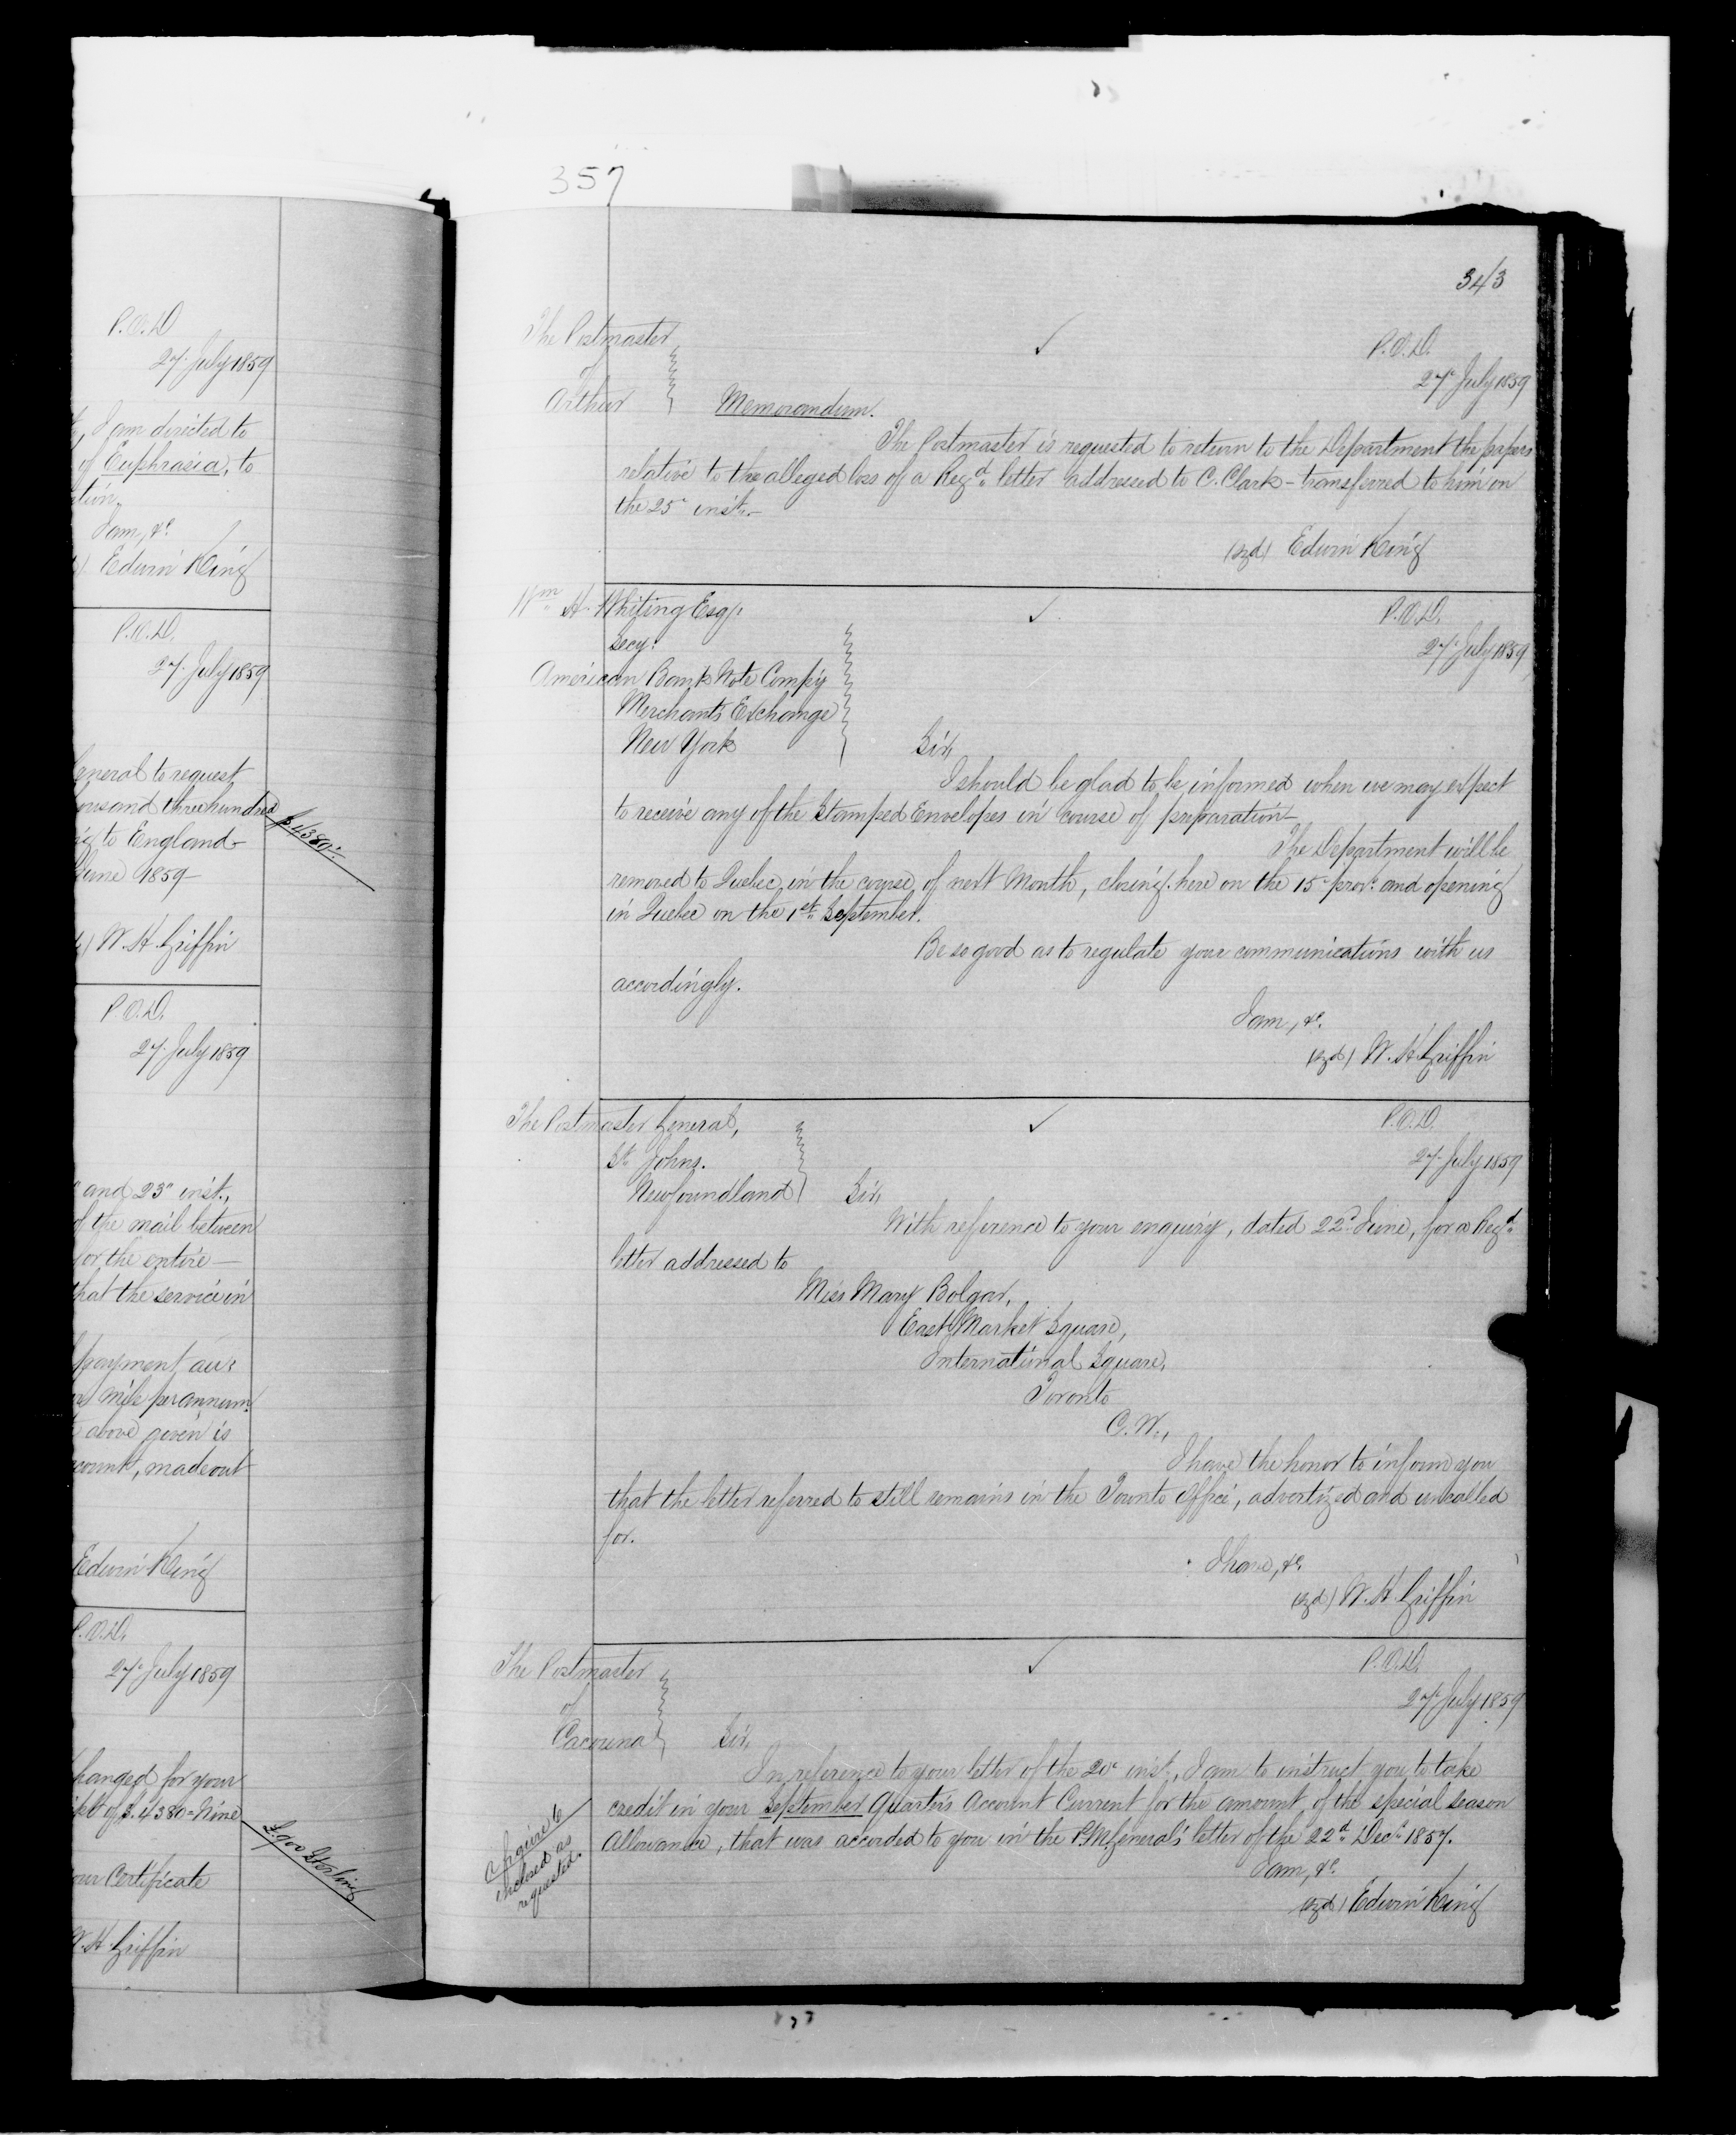 357
P.O.D
27 July 1859
I am directed to
of Euphrasia, to
I am, &c.
Edwin King
P.O.D.
27 July 1859
General to request
thousand three hundred
$4380
to England
June 1859
W. H. Griffin
P.O.D.
27 July 1859
and 23" inst.,
of the mail between
for the entire
that the service in
payment au:
mile per annum.
above given is
account, made out
Edwin King
P.O.D.
27 July 1859
for your
of $.4380 = Nine
£900 Sterling
our Certificate
W. H. Griffin
343
The Postmaster
of
Arthur
P.O.D.
27 July 1859
Memorandum.
The Postmaster is requested to return to the Department the papers
relative to the alleged loss of a Regd. letter addressed to C. Clark - transferred to him on
the 25" inst. -
(sgd) Edwin King
Wm. H. Whiting Esqr.
Secy.
American Bank Note Compy
Merchants Exchange
New York
P.O.D.
27 July 1859
Sir,
I should be glad to be informed when we may expect
to receive any of the Stamped Envelopes in course of preparation -
The Department will be
removed to Quebec, in the course of next Month, closing here on the 15" prox. and opening
in Quebec on the 1st. September.
Be so good as to regulate your communications with us
accordingly.
I am, &c.
(sgd) W. H. Griffin
The Postmaster General,
St. Johns.
Newfoundland
P.O.D.
27 July 1859
Sir,
With reference to your enquiry, dated 22d. June, for a Regd.
letter addressed to
Miss Mary Bolgar,
East Market Square,
International Square,
Toronto
C.W.,
I have the honor to inform you
that the letter referred to still remains in the Toronto Office, advertized and uncalled
for.
I have, &c.
(sgd) W. H. Griffin
The Postmaster
of
Cacouna
P.O.D.
27 July 1859
Sir,
In reference to your letter of the 20" inst., I am to instruct you to take
credit in your September Quarter's Account Current for the amount of the special Season
Allowance, that was accorded to you in the P.M. General's letter of the 22d. Decr. 1857.
inclosed as
requested.
I am, &c.
(sgd) Edwin King